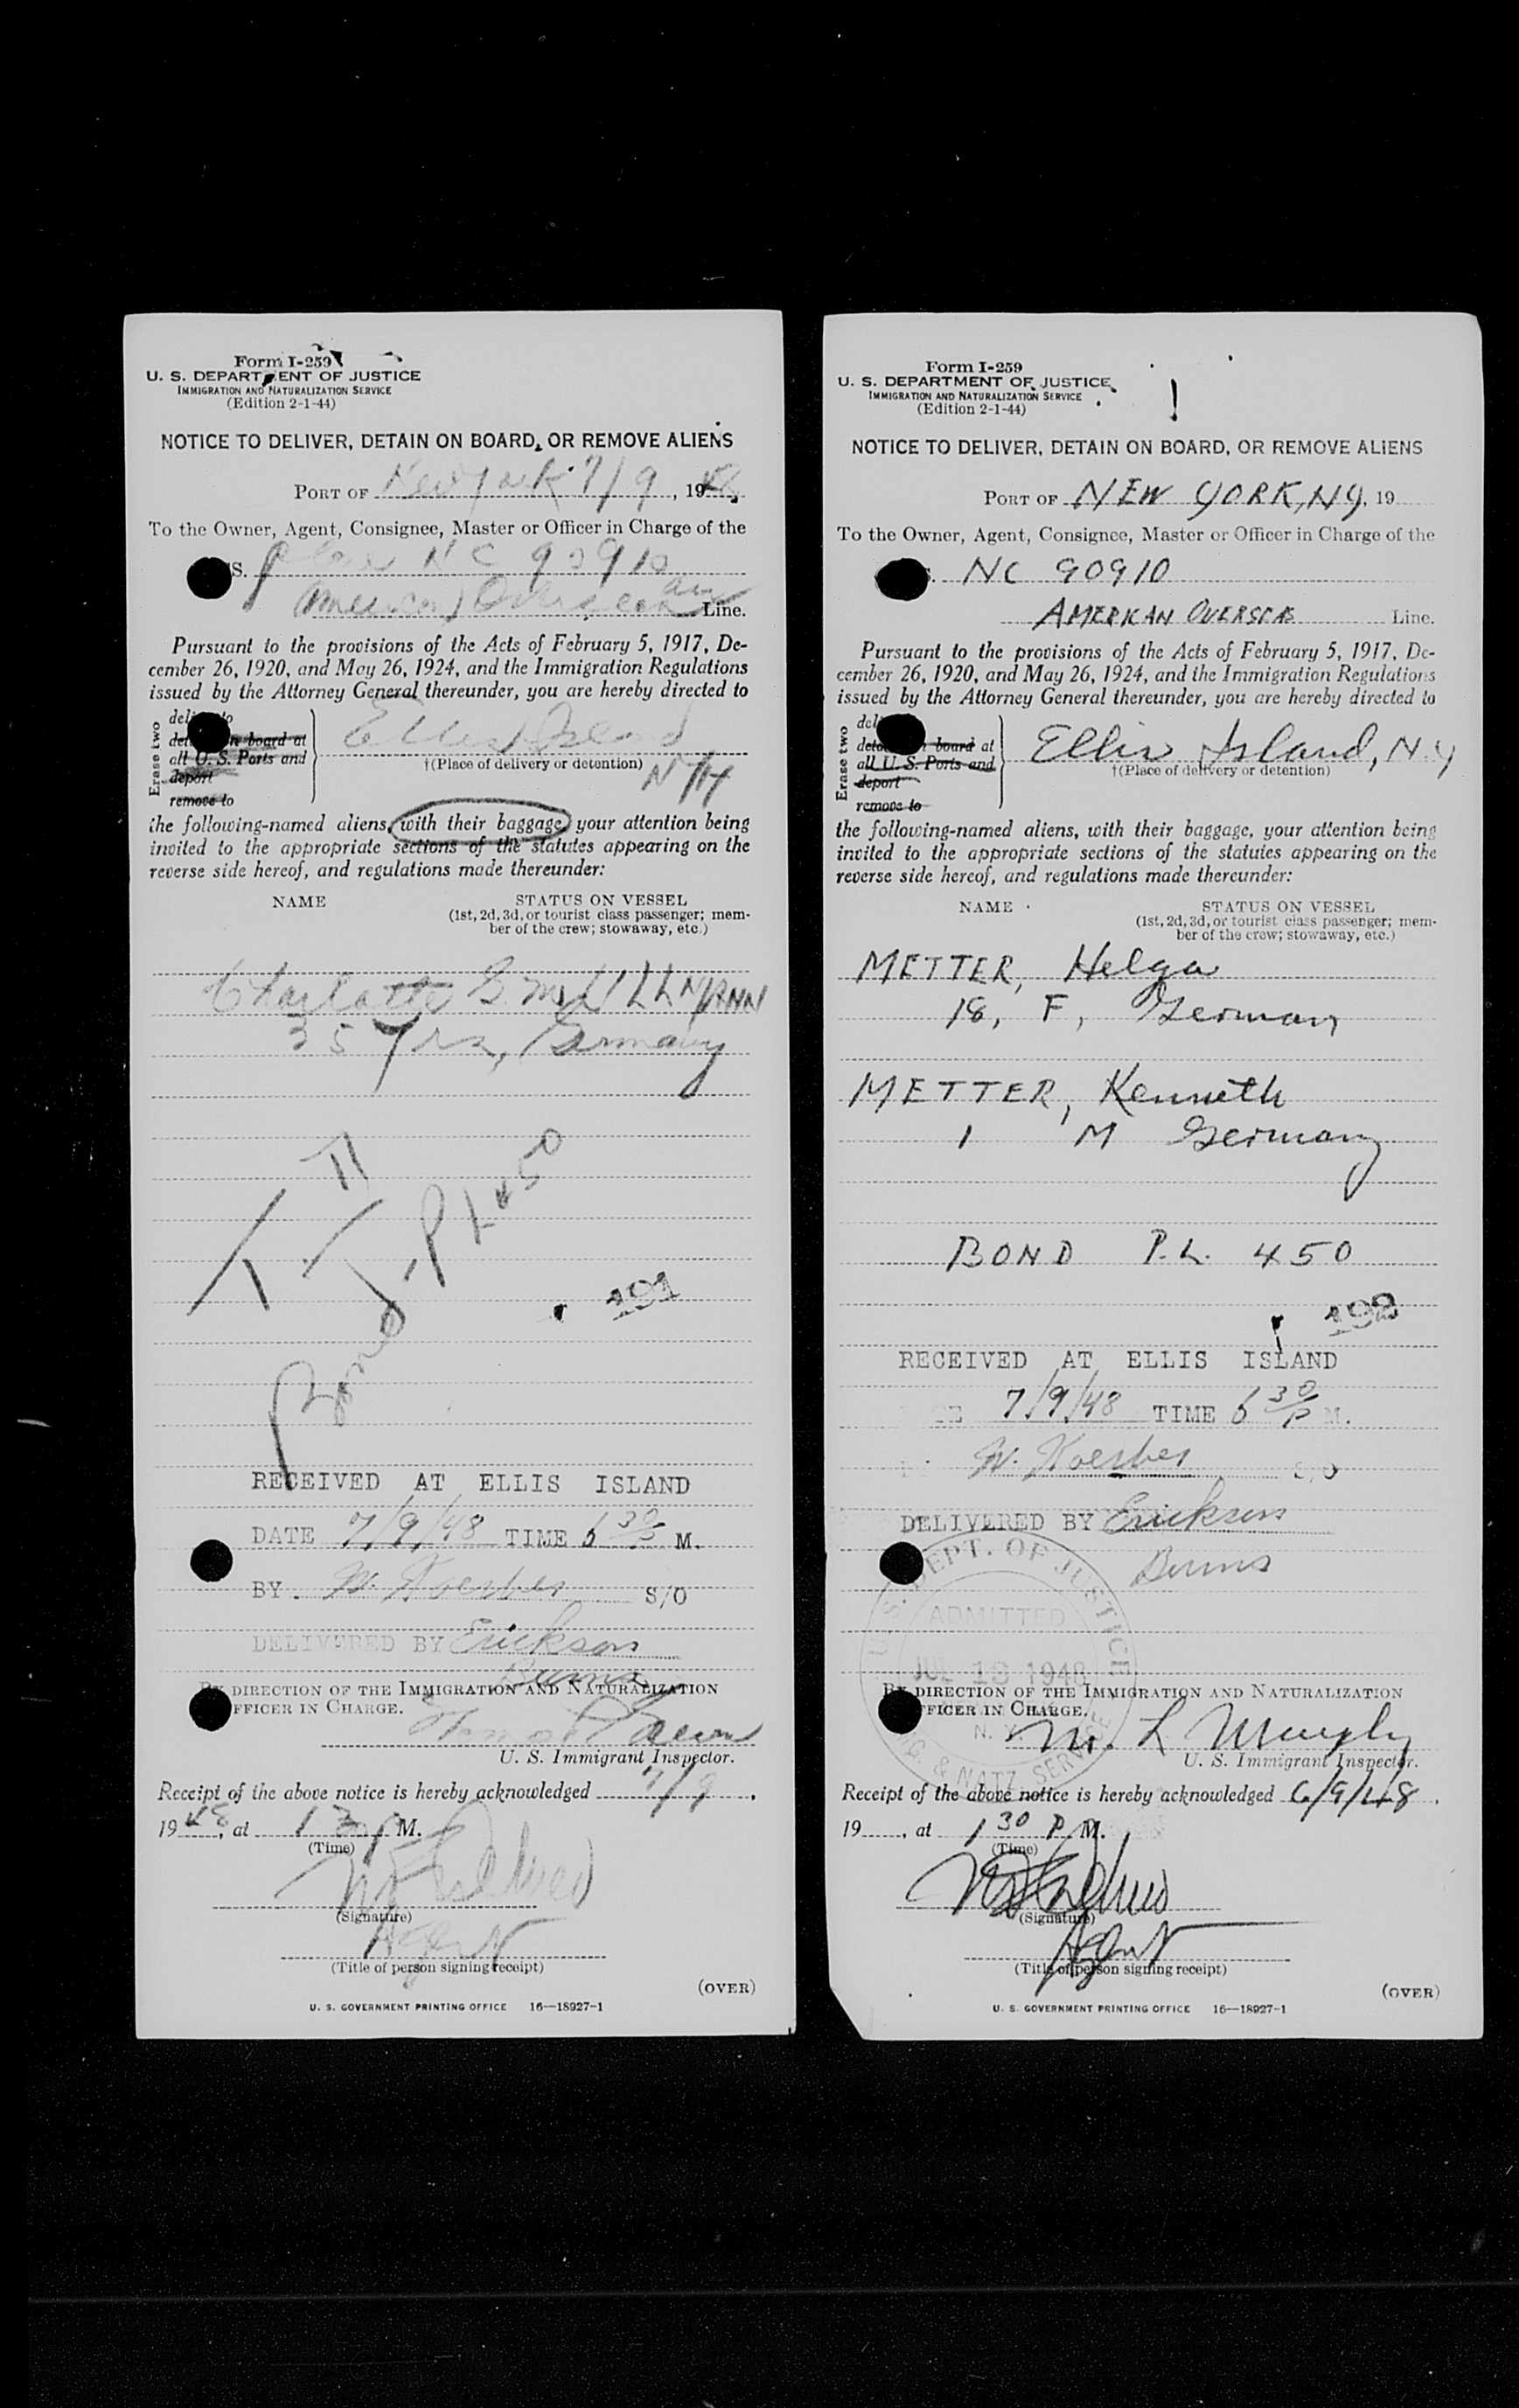 Form I-259
U. S. DEPARTMENT OF JUSTICE
IMMIGRATION AND NATURALIZATION SERVICE
(Edition 2-1-44)
NOTICE TO DELIVER, DETAIN ON BOARD, OR REMOVE ALIENS
PORT OF New York 7/9, 1948
To the Owner, Agent, Consignee, Master or Officer in Charge of the
S. plane NC 90910
American Overseas Line.
Pursuant to the provisions of the Acts of February 5, 1917, De-
cember 26, 1920, and May 26, 1924, and the Immigration Regulations
issued by the Attorney General thereunder, you are hereby directed to
Erase two
deliver to
detain on board at
all U. S. Ports and
deport
remove to
Ellis Island
†(Place of delivery or detention)
NYH
the following-named aliens, with their baggage, your attention being
invited to the appropriate sections of the statutes appearing on the
reverse side hereof, and regulations made thereunder:
NAME STATUS ON VESSEL
(1st, 2d, 3d, or tourist class passenger; mem-
ber of the crew; stowaway, etc.)
Charlotte
35 Yrs, Germany
Bond, PL 450
191
RECEIVED AT ELLIS ISLAND
DATE 7/9/48 TIME 6 30 M.
BY. W. Koerber S/O
DELIVERED BY Erickson
Burns
BY DIRECTION OF THE IMMIGRATION AND NATURALIZATION
OFFICER IN CHARGE.
U. S. Immigrant Inspector.
Receipt of the above notice is hereby acknowledged 7/9,
1948, at 1 30 P M.
(Time)
(Signature)
Agent
(Title of person signing receipt)
(OVER)
U. S. GOVERNMENT PRINTING OFFICE 16—18927-1
Form I-259
U. S. DEPARTMENT OF JUSTICE
IMMIGRATION AND NATURALIZATION SERVICE
(Edition 2-1-44)
NOTICE TO DELIVER, DETAIN ON BOARD, OR REMOVE ALIENS
PORT OF NEW YORK, NY, 19
To the Owner, Agent, Consignee, Master or Officer in Charge of the
NC 90910
AMERICAN OVERSEAS Line.
Pursuant to the provisions of the Acts of February 5, 1917, De-
cember 26, 1920, and May 26, 1924, and the Immigration Regulations
issued by the Attorney General thereunder, you are hereby directed to
Erase two
deliver to
detain on board at
all U. S. Ports and
deport
remove to
Ellis Island, N.Y
†(Place of delivery or detention)
the following-named aliens, with their baggage, your attention being
invited to the appropriate sections of the statutes appearing on the
reverse side hereof, and regulations made thereunder:
NAME STATUS ON VESSEL
(1st, 2d, 3d, or tourist class passenger; mem-
ber of the crew; stowaway, etc.)
METTER, Helga
18, F, German
METTER, Kenneth
1 M Germany
BOND P.L. 450
192
RECEIVED AT ELLIS ISLAND
7/9/48 TIME 6 30 P M.
W. Koerber S/O
DELIVERED BY Erickson
Burns
U. S. DEPT. OF JUSTICE
ADMITTED
JUL 13 1948
N. Y.
& NATZ. SERVICE
BY DIRECTION OF THE IMMIGRATION AND NATURALIZATION
OFFICER IN CHARGE.
M. L Murphy
U. S. Immigrant Inspector.
Receipt of the above notice is hereby acknowledged 6/9/48.
19, at 1 30 P M.
(Time)
(Signature)
Agent
(Title of person signing receipt)
(OVER)
U. S. GOVERNMENT PRINTING OFFICE 16—18927-1